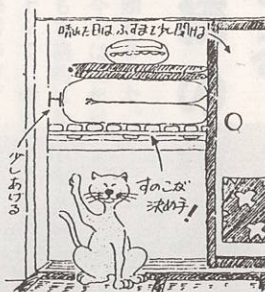 晴れた日は、ふすまを少し開ける
少しあける
すのこが
決め手!